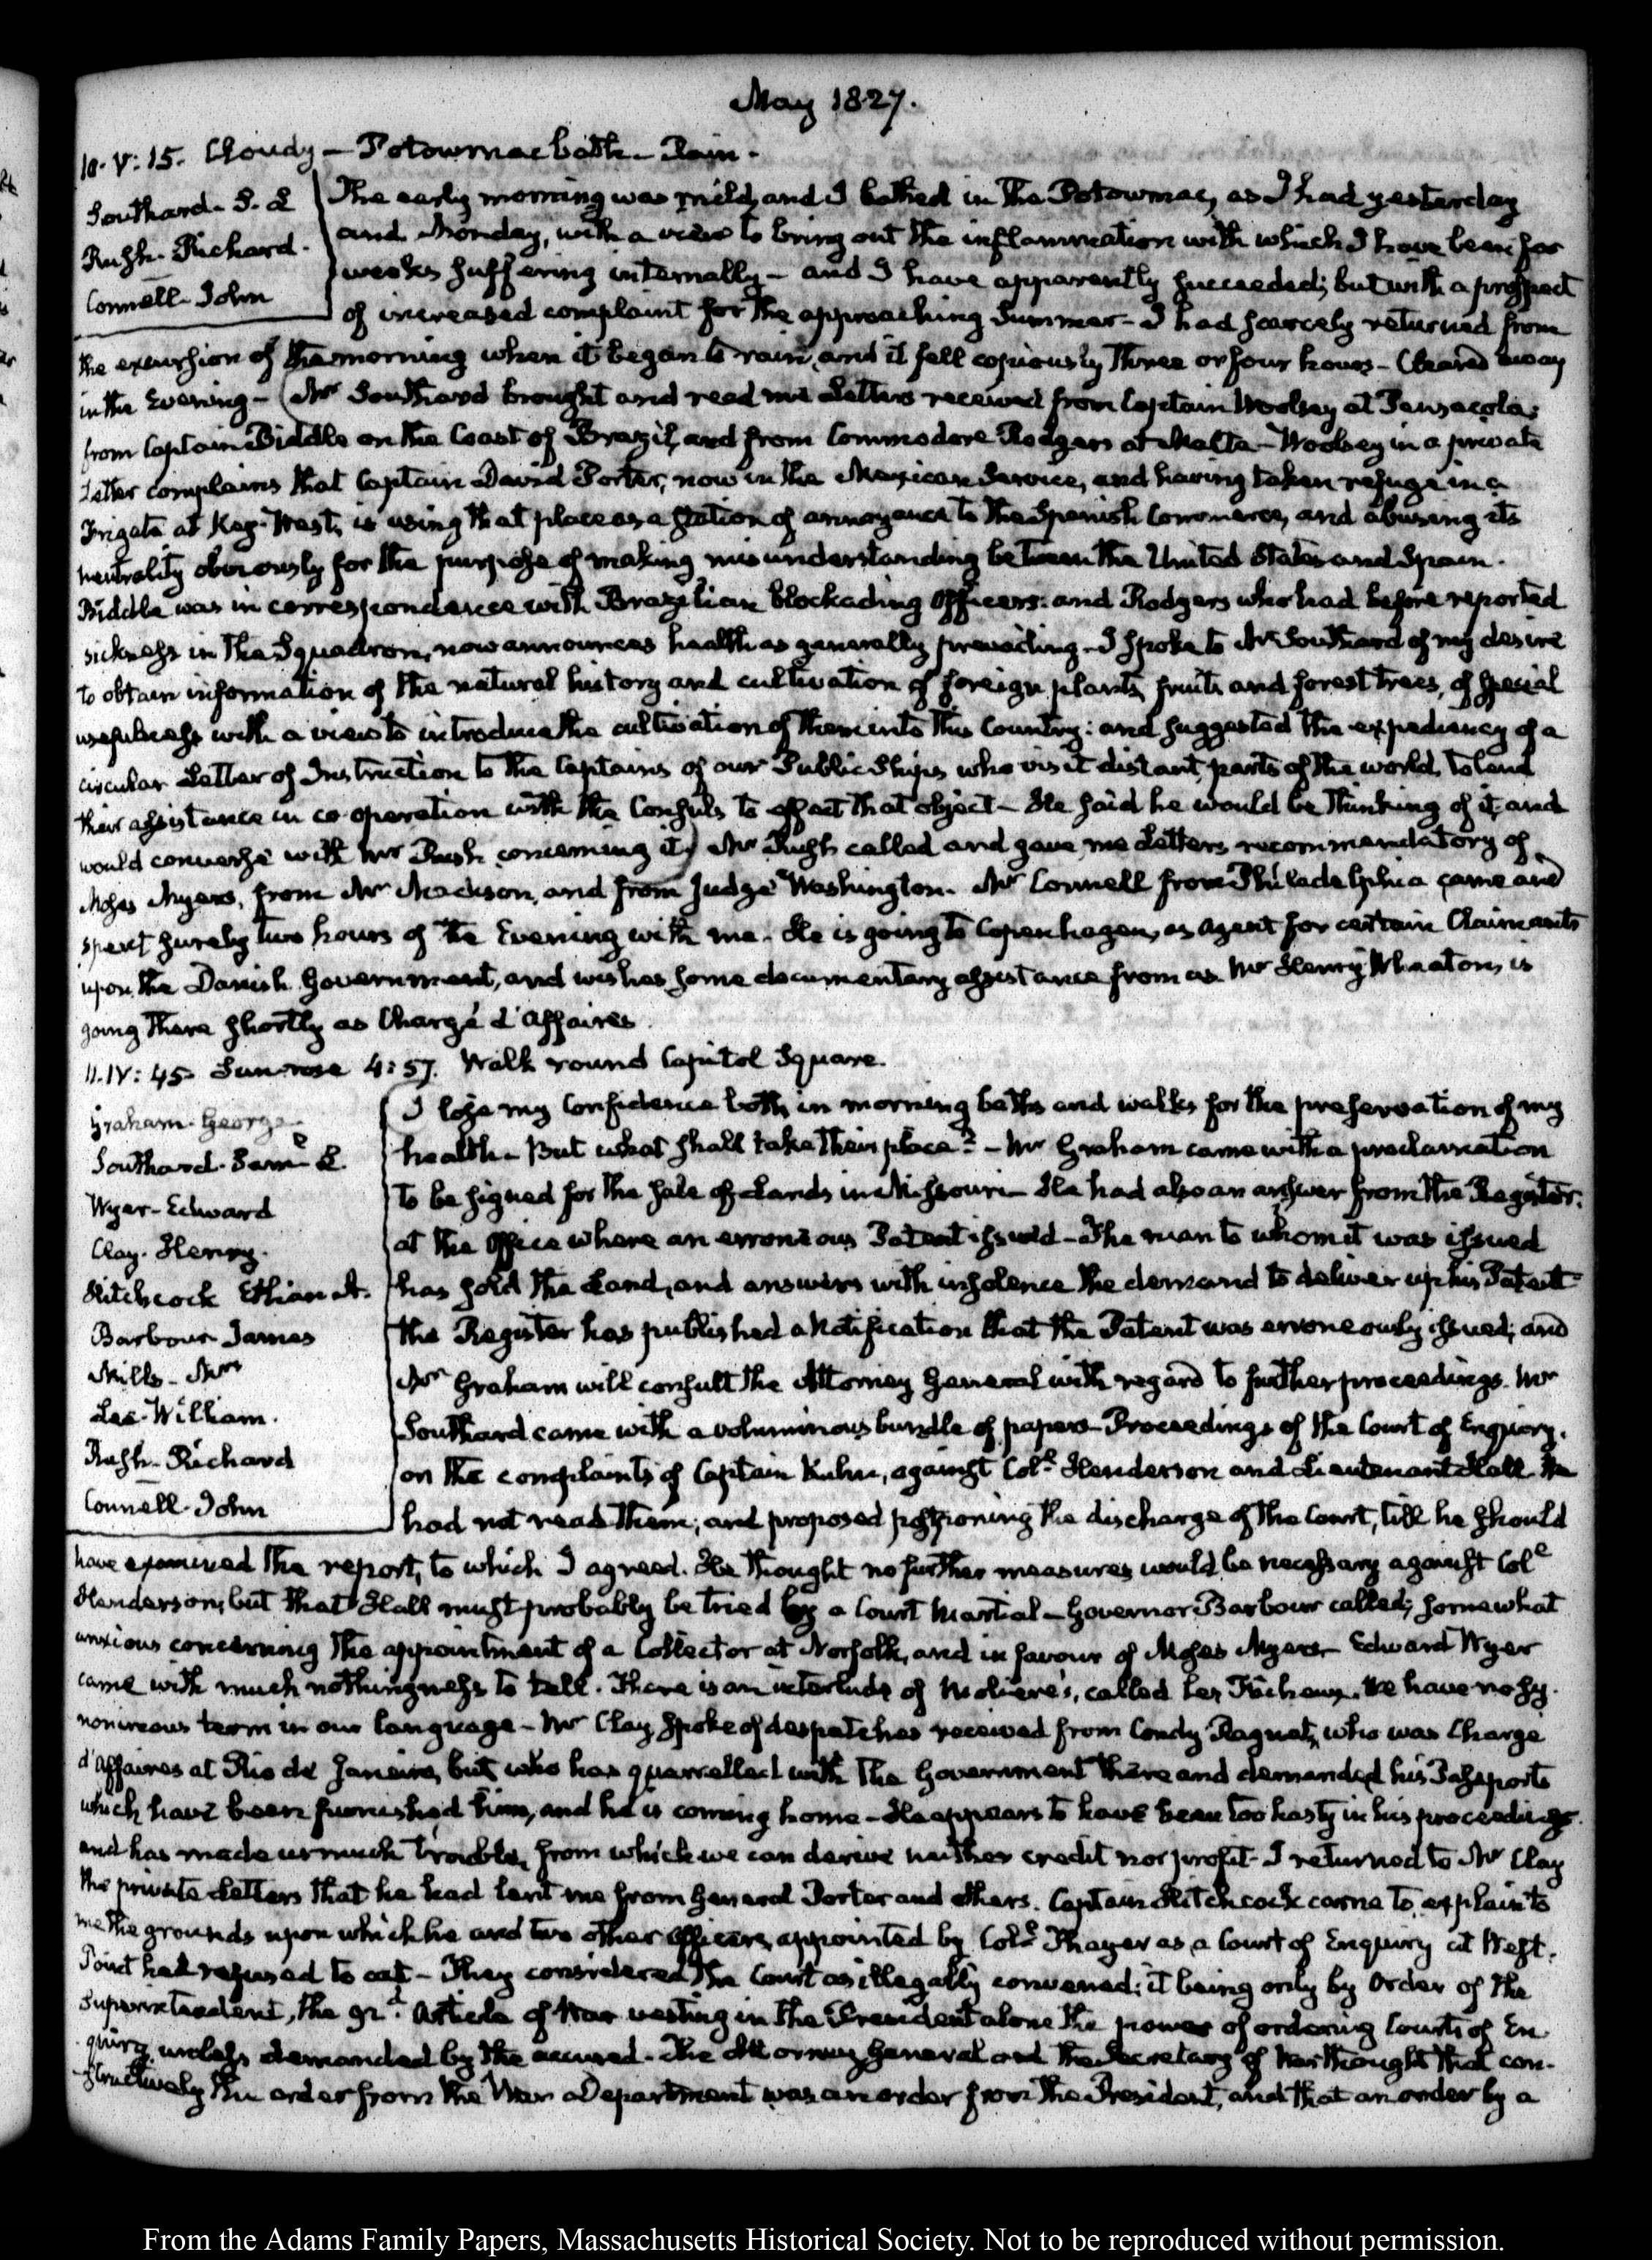 May 1827.
10. V: 15. Cloudy — Potowmac bath — Rain.
Southard. S. L
Rush. Richard.
Connell. John
The early morning was mild, and I bathed in the Potowmac, as I had yesterday
and Monday, with a view to bring out the inflammation with which I have been for
weeks suffering internally — and I have apparently succeeded; but with a prospect
of increased complaint for the approaching Summer — I had scarcely returned from
the excursion of the morning when it began to rain, and it fell copiously three or four hours — Cleared away
in the Evening — (Mr Southard brought and read me Letters received from Captain Woolsey at Pensacola;
from Captain Biddle on the Coast of Brazil, and from Commodore Rodgers at Malta — Woolsey in a private
Letter complains that Captain David Porter, now in the Mexican Service, and having taken refuge in a
Frigate at Key-West, is using that place as a station of annoyance to the Spanish Commerce, and abusing its
neutrality obviously for the purpose of making misunderstanding between the United States and Spain.
Biddle was in correspondence with Brazilian blockading Officers: and Rodgers who had before reported
sickness in the Squadron, now announces health as generally prevailing — I spoke to Mr Southard of my desire
to obtain information of the natural history and cultivation of foreign plants, fruits and forest trees, of special
usefulness with a view to introduce the cultivation of them into this Country: and suggested the expediency of a
circular Letter of Instruction to the Captains of our Public Ships who visit distant parts of the world, to lend
their assistance in co-operation with the Consuls to effect that object — He said he would be thinking of it, and
would converse with Mr Rush concerning it) Mr Rush called and gave me Letters recommendatory of
Moses Myers, from Mr Madison, and from Judge Washington. Mr Connell from Philadelphia came and
spent surely two hours of the Evening with me. He is going to Copenhagen, as Agent for certain Claimants
upon the Danish Government, and wishes some documentary assistance from us. Mr Henry Wheaton, is
going there shortly as Chargé d'Affaires.
11. IV: 45. Sun rose 4:57. Walk round Capitol Square.
Graham. George
Southard. Saml. L.
Wyer. Edward
Clay. Henry.
Hitchcock Ethan A.
Barbour James
Mills. Mrs
Lee. William.
Rush. Richard
Connell. John
(I lose my confidence both in morning baths and walks for the preservation of my
health — But what shall take their place? — Mr Graham came with a proclamation
to be signed for the sale of Lands in Missouri — He had also an answer from the Register.
at the Office where an erroneous Patent issued — The man to whom it was issued
has sold the Land, and answers with insolence the demand to deliver up his Patent —
the Register has published a Notification that the Patent was erroneously issued; and
Mr Graham will consult the Attorney General with regard to further proceedings. Mr
Southard came with a voluminous bundle of papers — Proceedings of the Court of Enquiry.
on the complaints of Captain Kuhn, against Coll. Henderson and Lieutenant Hall. He
had not read them; and proposed postponing the discharge of the Court, till he should
have examined the report, to which I agreed. He thought no further measures would be necessary against Coll
Henderson; but that Hall must probably be tried by a Court Martial — Governor Barbour called; somewhat
anxious concerning the appointment of a Collector at Norfolk, and in favour of Moses Myers — Edward Wyer
came with much nothingness to tell. There is an interlude of Moliere's, called Les Fâcheux. We have no sy-
nonimous term in our language — Mr Clay spoke of despatches received from Condy Raguet, who was Chargé
d'Affaires at Rio de Janeiro, but who has quarrelled with the Government there and demanded his Passports
which have been furnished him, and he is coming home — He appears to have been too hasty in his proceedings.
and has made us much trouble, from which we can derive neither credit nor profit — I returned to Mr Clay
the private Letters that he had lent me from General Porter and others. Captain Hitchcock came to explain to
me the grounds upon which he and two other Officers, appointed by Coll. Thayer as a Court of Enquiry at West-
Point had refused to act — They considered the Court as illegally convened; it being only by Order of the
Superintendent, the 92d. Article of War vesting in the President alone the power of ordering Courts of En-
quiry unless demanded by the accused. The Attorney General and the Secretary of War thought that con-
structively the order from the War Department was an order from the President, and that an order by a
From the Adams Family Papers, Massachusetts Historical Society. Not to be reproduced without permission.